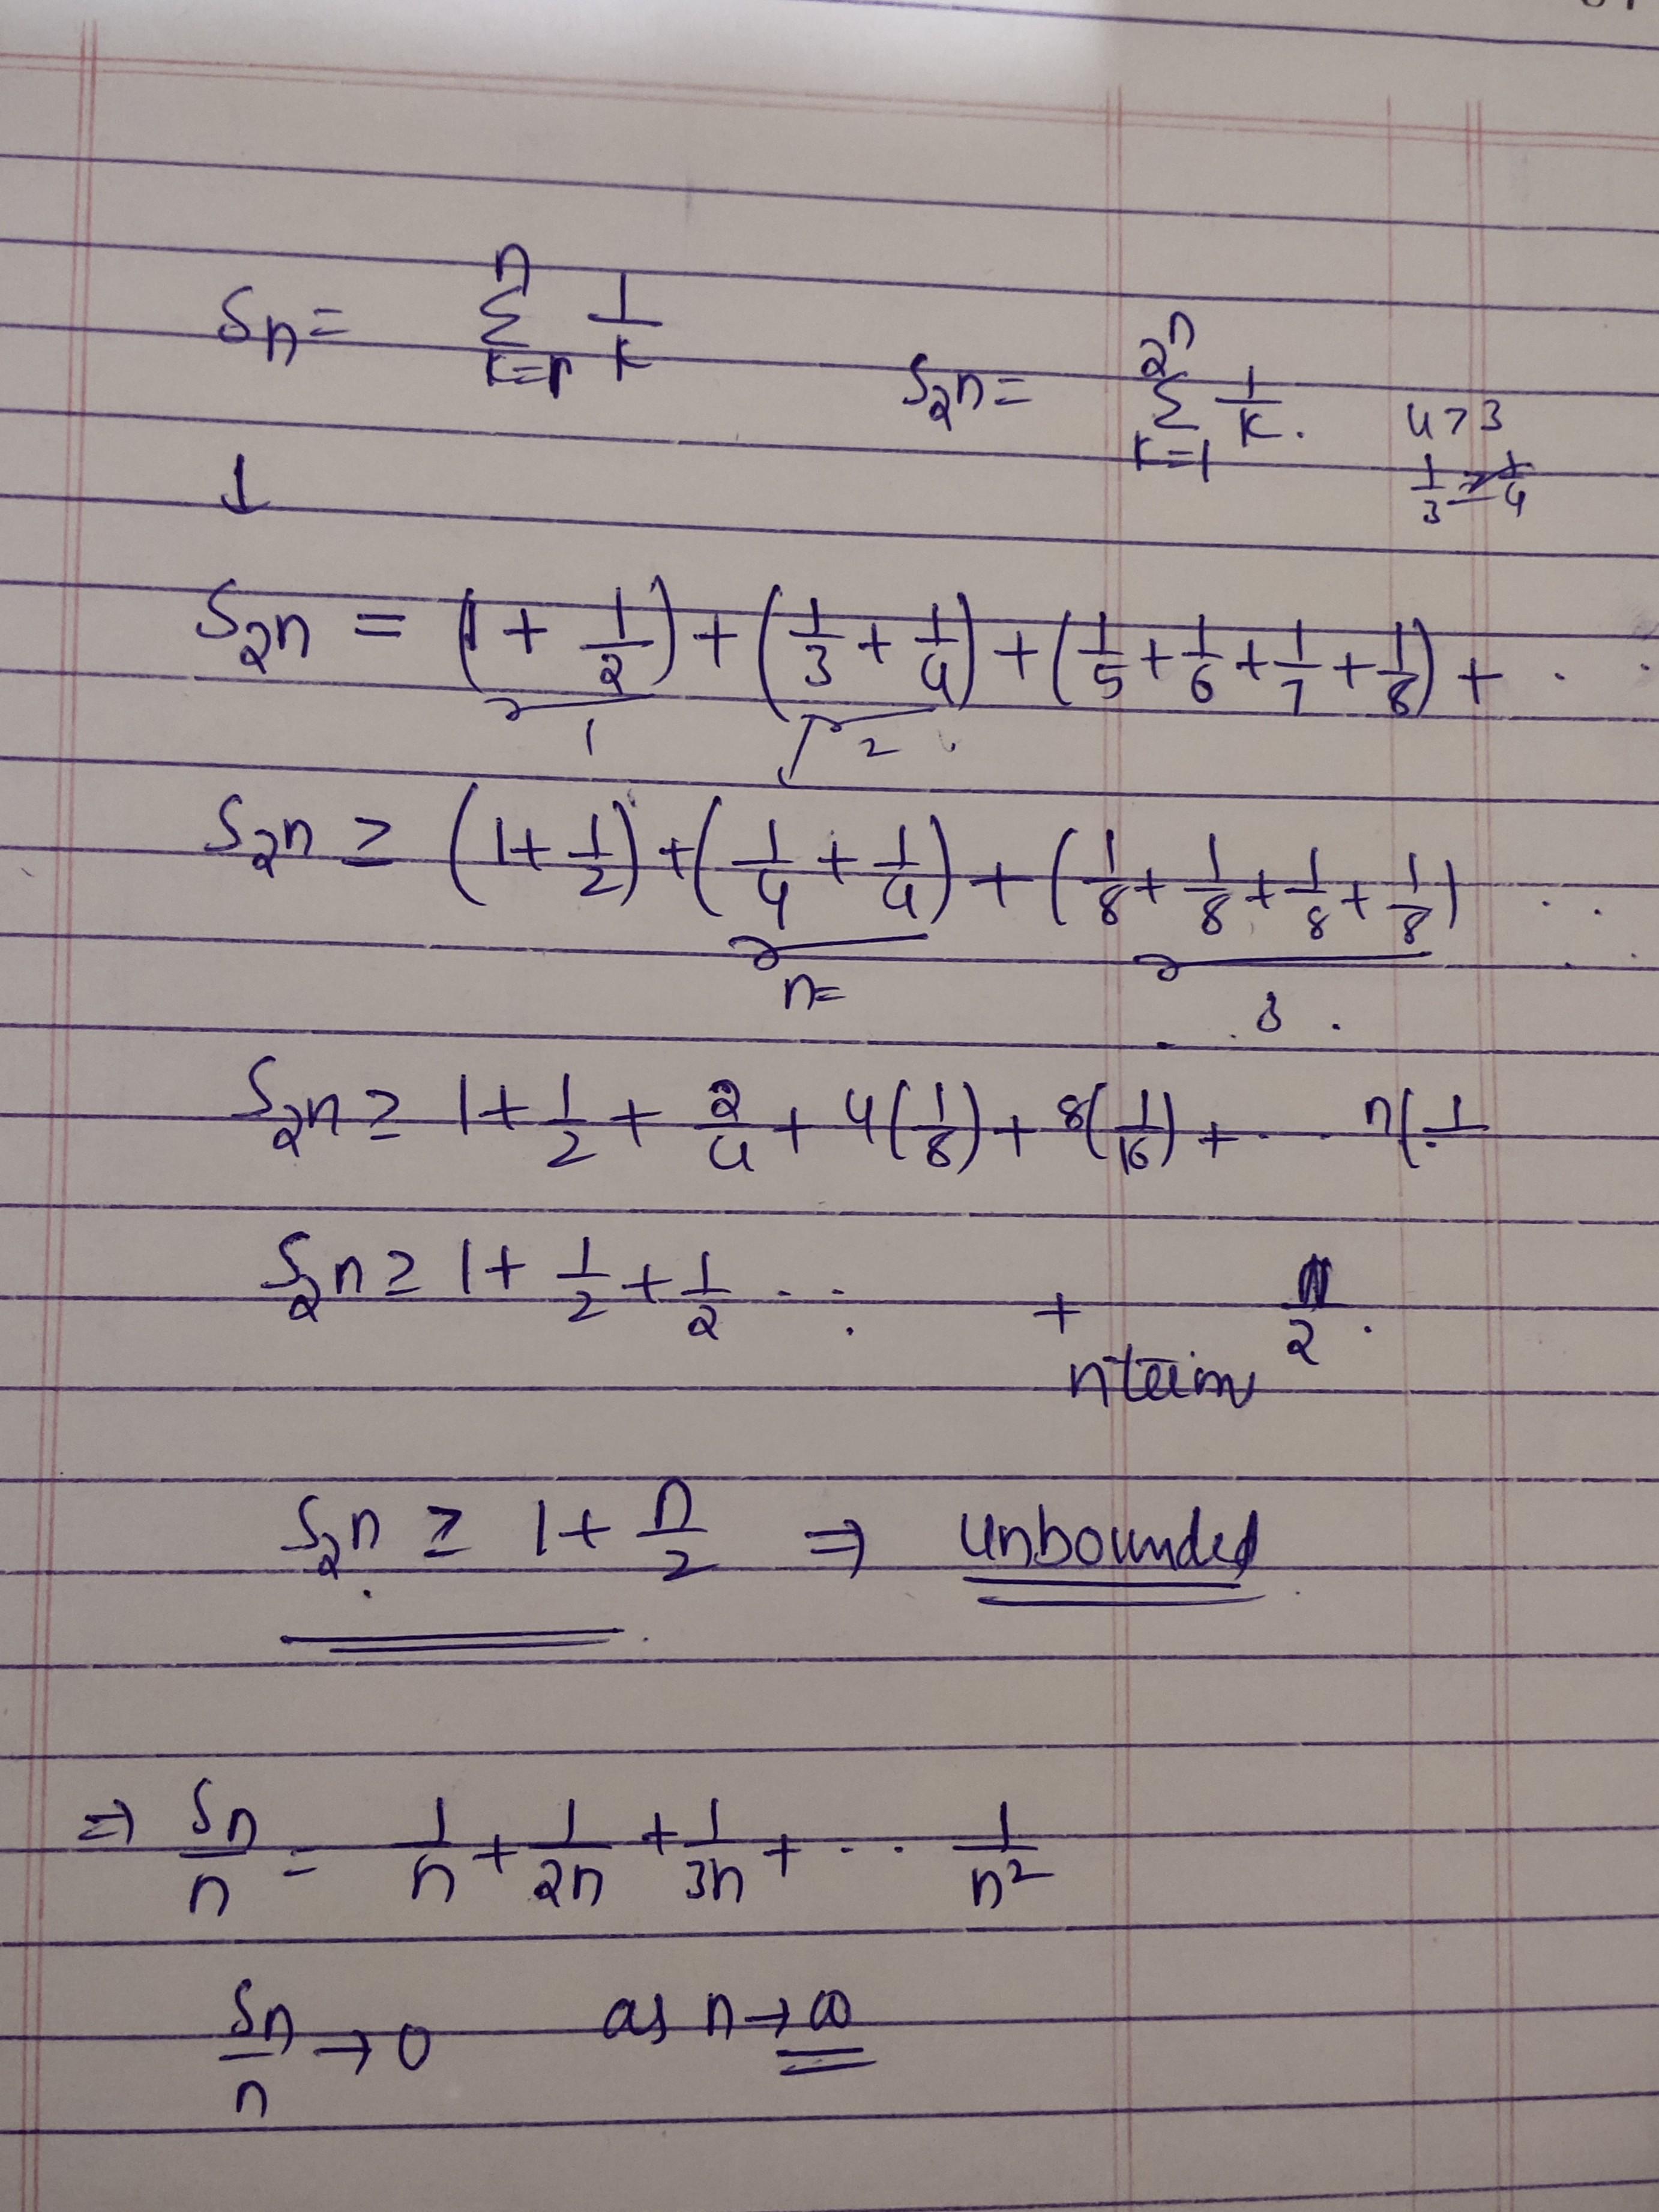 Sn = n Σ k=1 1/k
S2n = 2^n Σ k=1 1/k.
4 > 3
1/3 ≥ 1/4
↓
S2n = (1 + 1/2) + (1/3 + 1/4) + (1/5 + 1/6 + 1/7 + 1/8) + . .
1 2
S2n ≥ (1 + 1/2) + (1/4 + 1/4) + (1/8 + 1/8 + 1/8 + 1/8) . .
n= 3 .
S2n ≥ 1 + 1/2 + 2/4 + 4(1/8) + 8(1/16) + . . . n(1
S2n ≥ 1 + 1/2 + 1/2 . . . + n/2 .
n term
S2n ≥ 1 + n/2 ⇒ unbounded
⇒ Sn/n = 1/n + 1/2n + 1/3n + . . . 1/n²
Sn/n → 0 as n → ∞